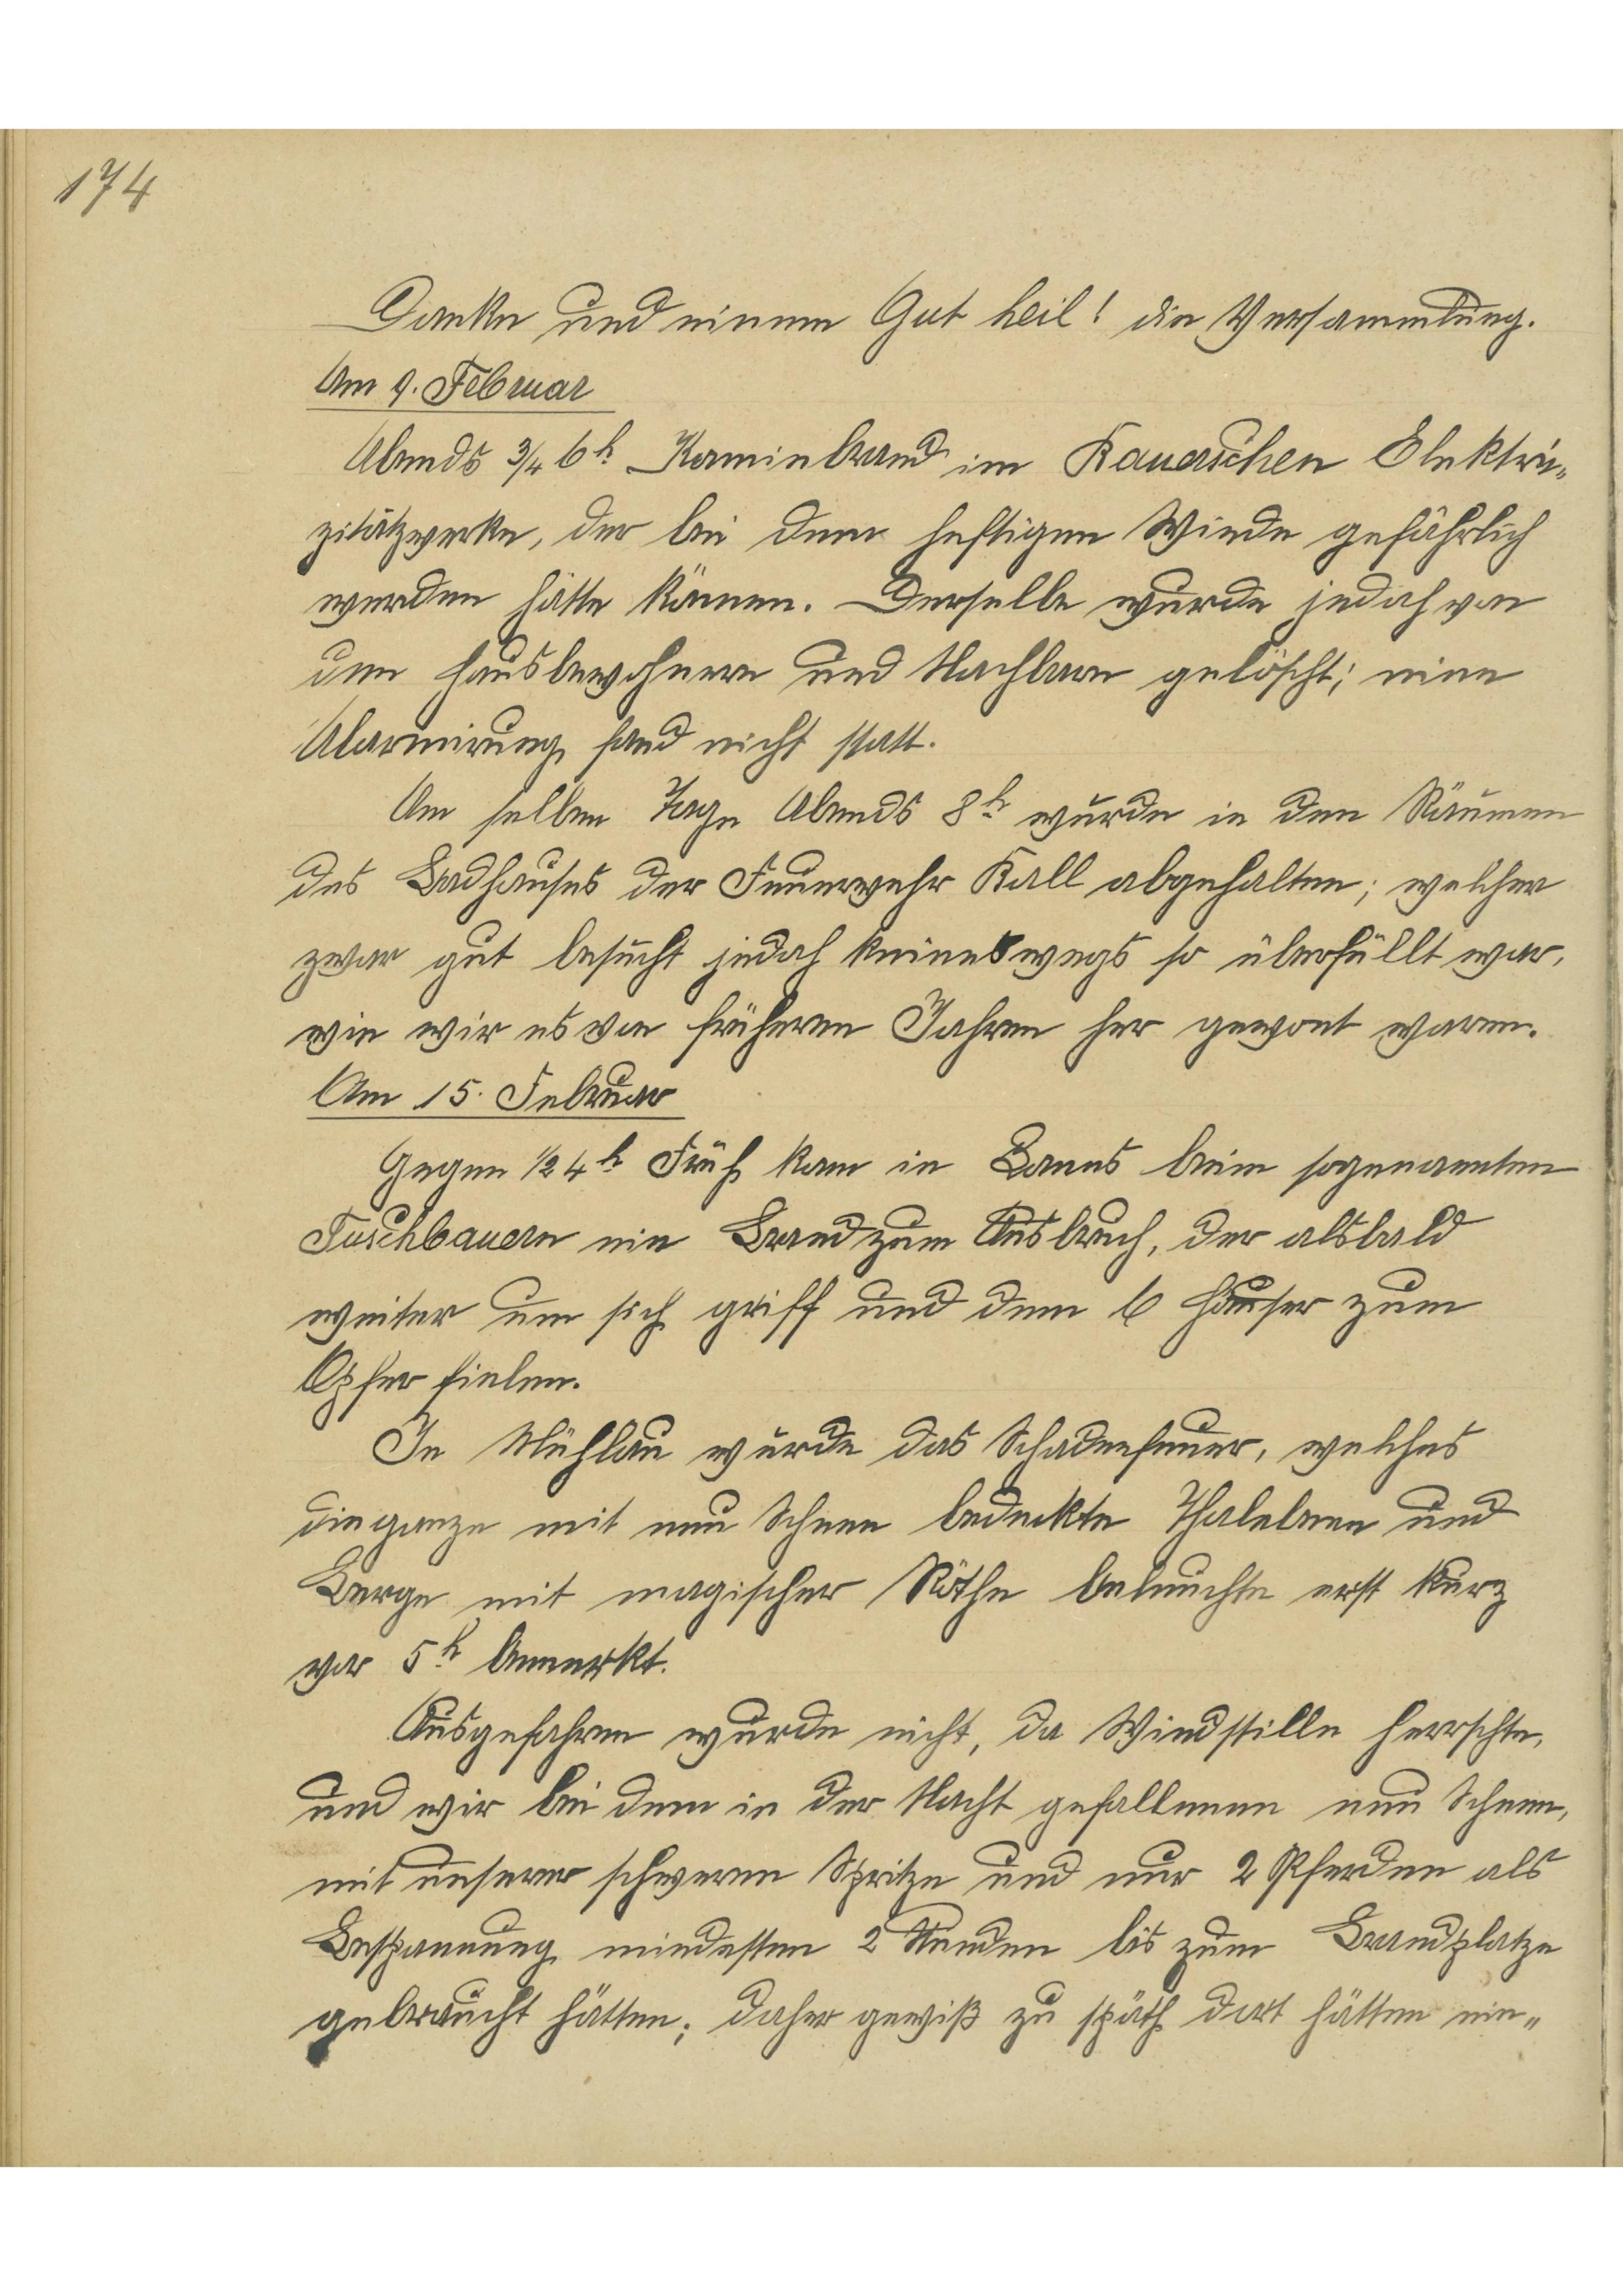 174
Danke und einem Gut heil! die Versammlung.
Am 9. Februar
Abends ¾ 6h Kaminbrand im Rauch'schen Elektri-
zitätzwerke, der bei dem heftigen Winde gefährlich
werden hätte können. Derselbe wurde jedoch von
den Hausbewohnern und Nachbarn gelöscht; eine
Alarmirung fand nicht statt.
Am selben Tage Abends 8h wurde in den Räumen
des Badhauses der Feuerwehr Ball abgehalten; welcher
zwar gut besucht jedoch keineswegs so überfüllt war,
wie wir es von früheren Jahren her gewont waren.
Am 15. Februar
Gegen ½ 4h Früh kam in Vanns beim sogenannten
Fuschbauern ein Brand zum Ausbruch, der alsbald
weiter um sich griff und dem 6 Häuser zum
Opfer fielen.
In Mühlau wurde das Schadenfeuer, welches
die ganze mit neu Schnee bedeckte Thalebene und
Berge mit magischer Röthe beleuchte erst kurz
vor 5h bemerkt.
Ausgefahren wurde nicht, da Windstille herrschte,
und wir bei dem in der Nacht gefallenen neu Schnee,
mit unserer schweren Spritze und nur 2 Pferden als
Bespannung mindesten 2 Stunden bis zum Brandplatze
gebraucht hätten; daher gewiß zu späth dort hätten ein-